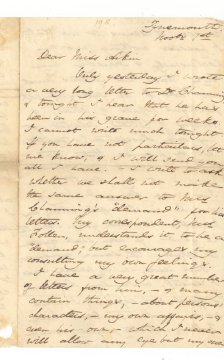 Tynemouth
Novbr 1st
Dear Miss Aikin
Only yesterday I wrote
a very long letter to Dr Channing
& tonight I hear that he has
been in his grave for weeks.
I cannot write much tonight.
If you have not particulars, let
me know, & I will send you
all I have. I write to ask
whether we shall not make
the same answer to Mrs
Channing's "demand" for his
letters. My correspondent, Miss
Follen, understands it to be a
"demand", but encourages my
consulting my own feelings.
I have a very great number
of letters from him, & many
contain things, – about personal
characters, – my own affairs, &
even his own, – which I never
will allow any eye but my